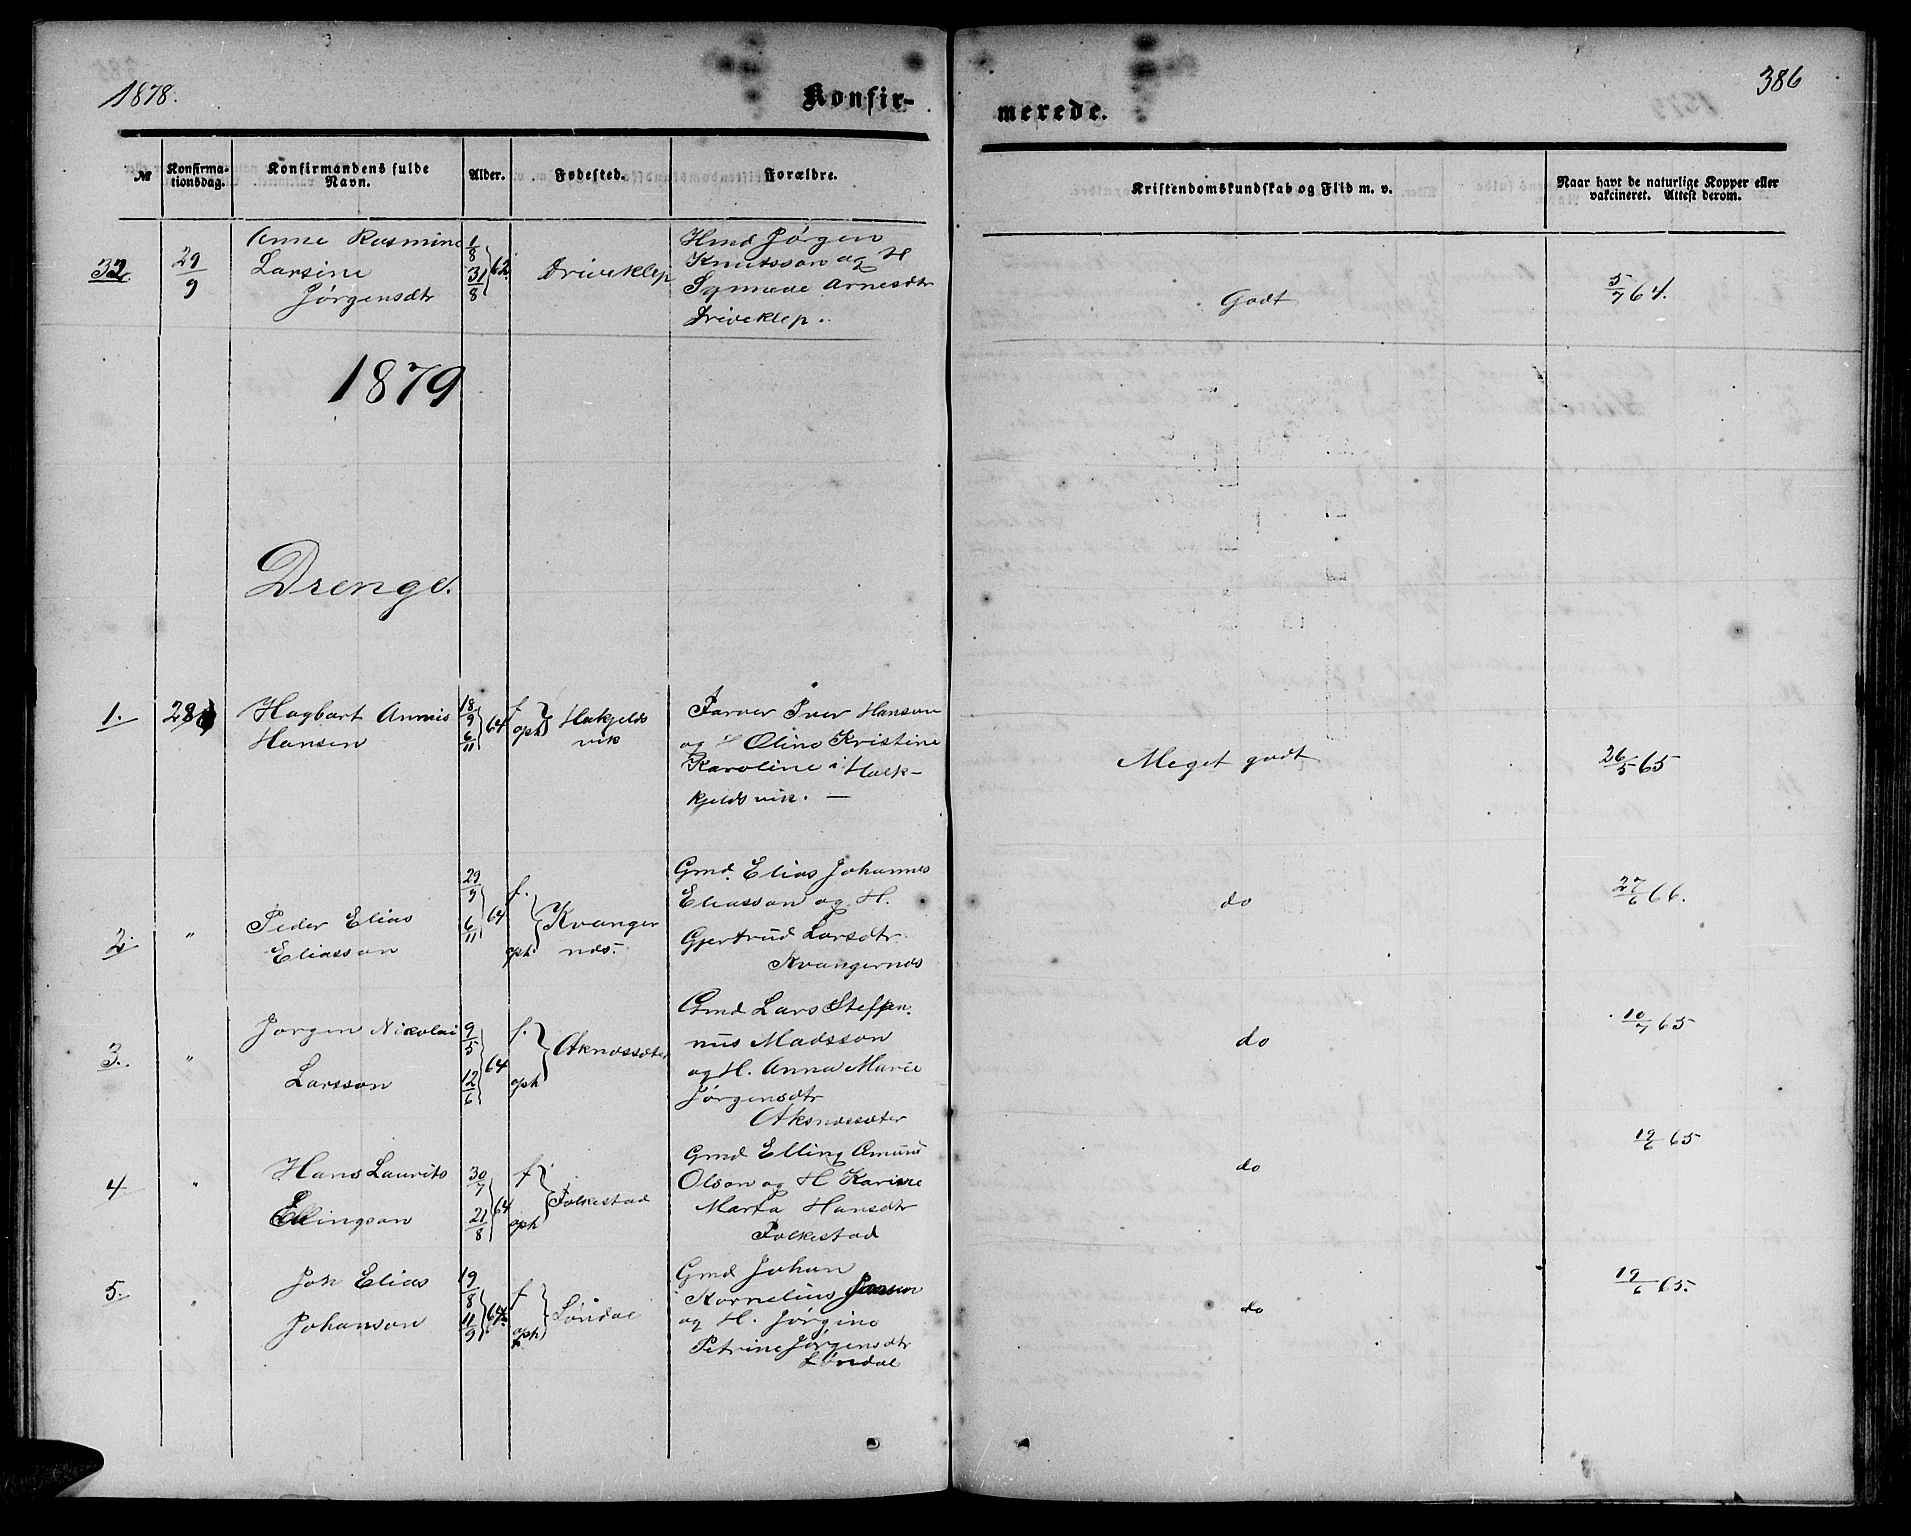 1878.
Konfir-
merede.
386
№
Konfirma-
tionsdag.
Konfirmandens fulde
Navn.
Alder.
Fødested.
Forældre.
Kristendomskundskab og Flid m. v.
Naar havt de naturlige Kopper eller
vakcineret. Attest derom.
32
29/9
Anne Rasmine
Larsine
Jørgensdtr
1/8 31/8 62.
Driveklep
Hmd Jørgen
Knutsson og H
Synneve Arnesdtr
Driveklep.
Godt
5/7 64.
1879
Drenge.
1.
Hagbart
Hansen
18/9 6/11 64
f
oph
vik
Iver Hanson
og H Oline Kristine
Karoline i Halk-
kjeldsvik. —
Meget godt
26/5 65
2.
"
Peder Elias
Eliasson
29/9 6/11 64
f.
oph.
Kvanger
næs.
Gmd. Elias Johannes
Eliasson og H.
Gjertrud Larsdtr.
Kvangernæs
do
27/6 66.
3.
"
Jørgen Nikolai
Larsson
9/5 12/6 64
f.
oph
Aknæssæter
Gmd Lars Steffen-
nus Madsson
og H. Anna Marie
Jørgensdtr
Aksnæssæter
do
10/7 65
4
"
Hans Laurits
Ellingson
30/7 21/8 64
f
oph
Folkestad
Gmd Elling Amund
Olson og H Karine
Marta Hansdtr
Folkestad
do
19/6 65
5.
"
Joh Elias
Johanson
19/8 11/9 64.
f
oph
Løndal
Gmd Johan
Kornelius
og H. Jørgine
Petrine Jørgensdtr
Løndal
do
19/6 65.